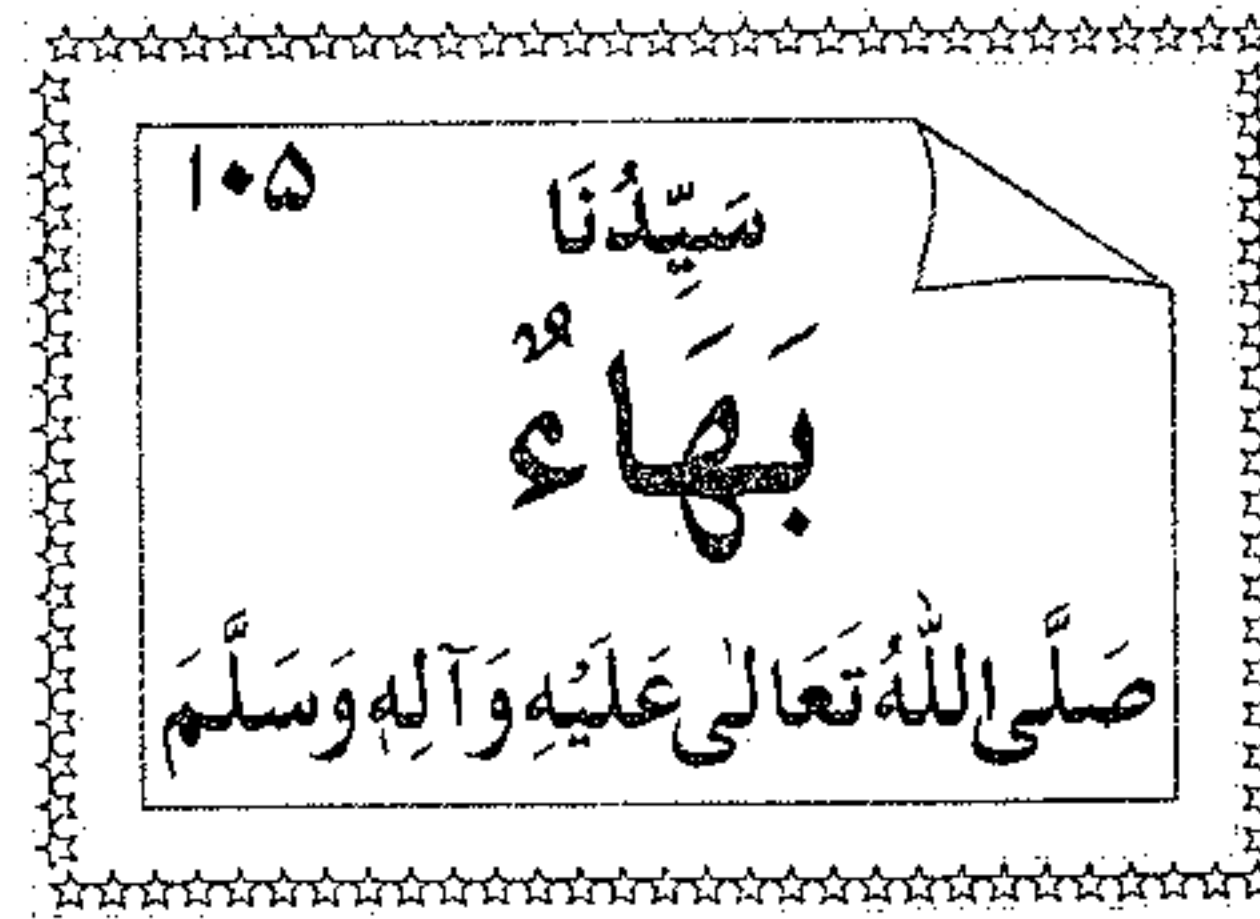 ۱۰۵
سَيِّدُنَا
بَهَاءٌ
صَلَّى اللّٰهُ تَعَالٰى عَلَيْهِ وَآلِهٖ وَسَلَّمَ